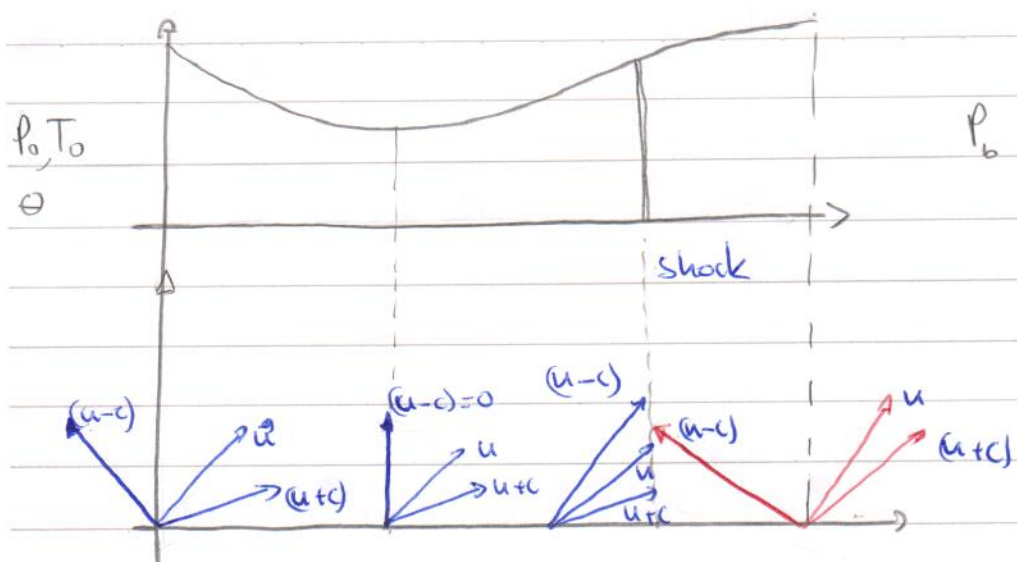 P₀, T₀
θ
P_b
shock
(u-c)
u
(u+c)
(u-c)=0
u
u+c
(u-c)
u
u+c
(u-c)
u
(u+c)